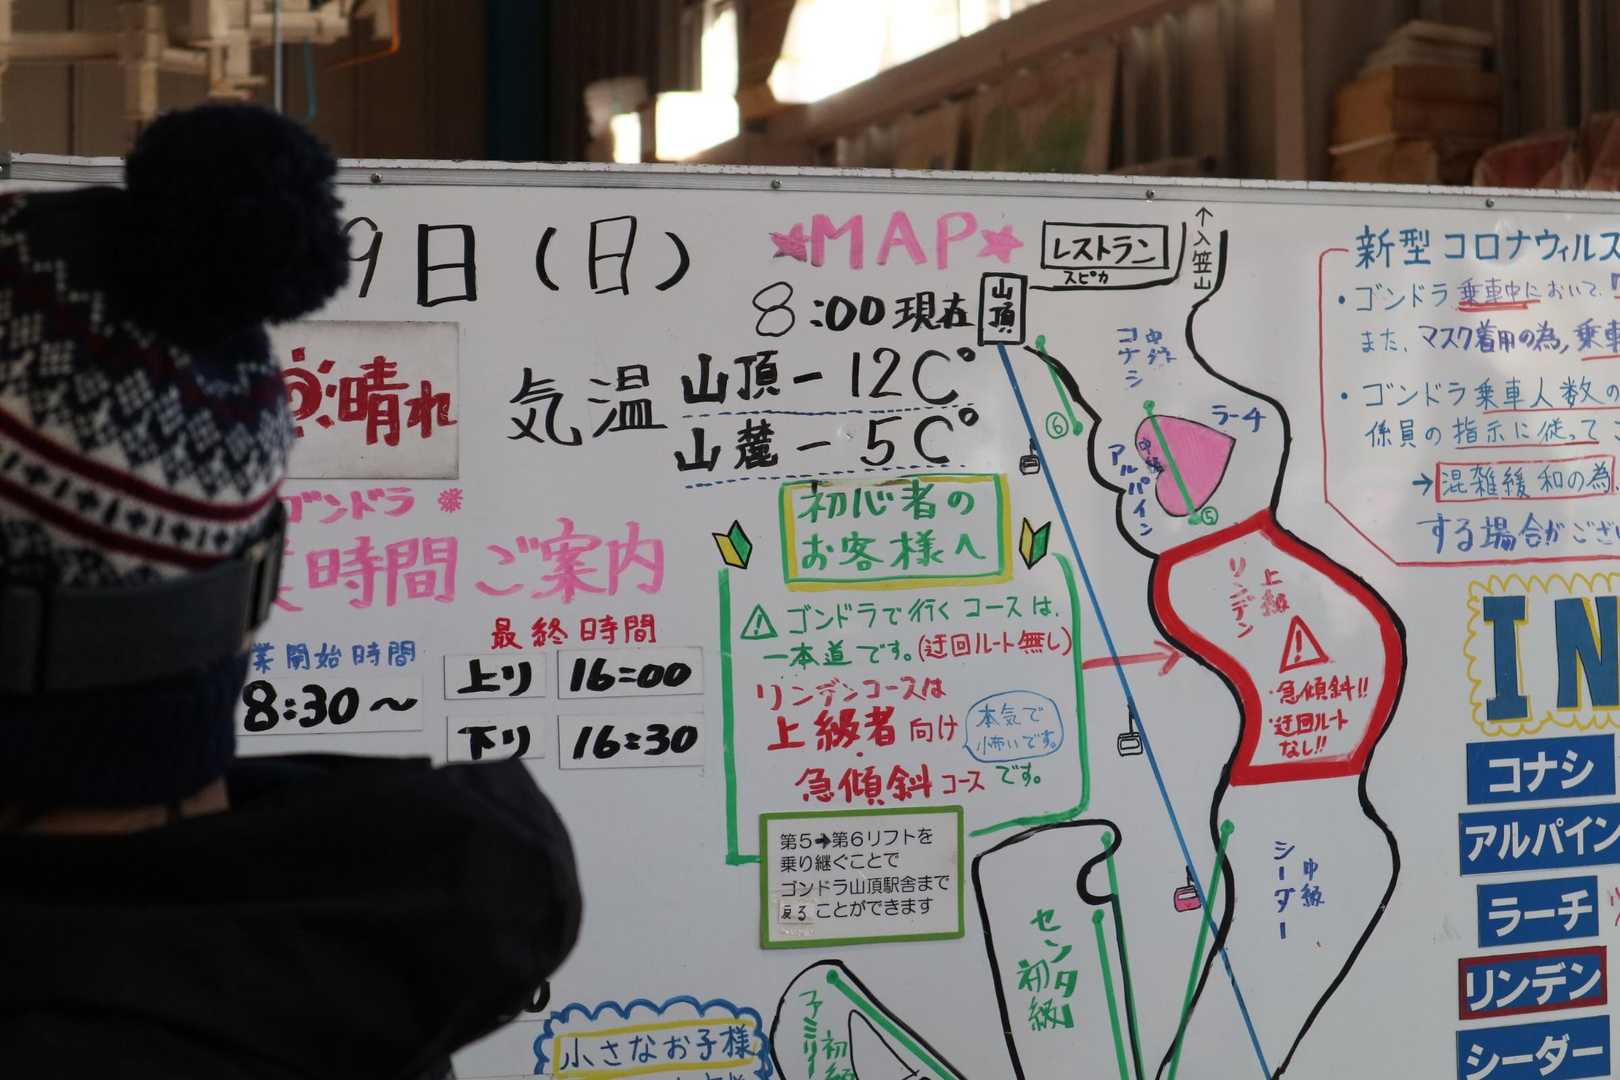 9日(日)
晴れ
ゴンドラ
時間ご案内
業開始時間
8:30〜
最終時間
上り 16:00
下り 16:30
★MAP★
8:00現在
気温
山頂 −12C°
山麓 −5C°
初心者の
お客様へ
ゴンドラで行くコースは、
一本道です。(迂回ルート無し)
リンデンコースは
上級者向け
急傾斜コースです。
本気で
怖いです。
第5➡第6リフトを
乗り継ぐことで
ゴンドラ山頂駅舎まで
戻ることができます
小さなお子様
レストラン
スピカ
山頂
↑入笠山
コナシ
⑥
中級
アルパイン
ラーチ
⑤
上級
リンデン
・急傾斜!!
・迂回ルート
なし!!
中級
シーダー
センター
初級
ファミリー
初級
新型コロナウィルス
・ゴンドラ乗車中において
また、マスク着用の為、乗車
・ゴンドラ乗車人数の
係員の指示に従って
→混雑緩和の為
する場合がござい
IN
コナシ
アルパイン
ラーチ
リンデン
シーダー